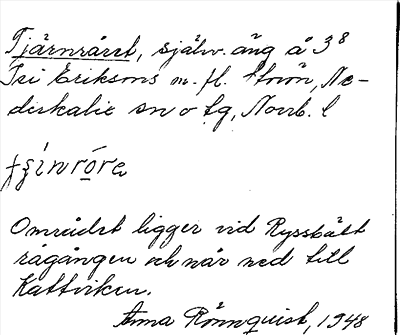 Tjärnrået, självr. äng å 3⁸
Isi Eriksons m. fl. Storön, Ne-
derkalix sn o tg, Norrb. l
Området ligger vid Ryssbält
rågången och når ned till
Kattviken.
Anna Rönnquist, 1948